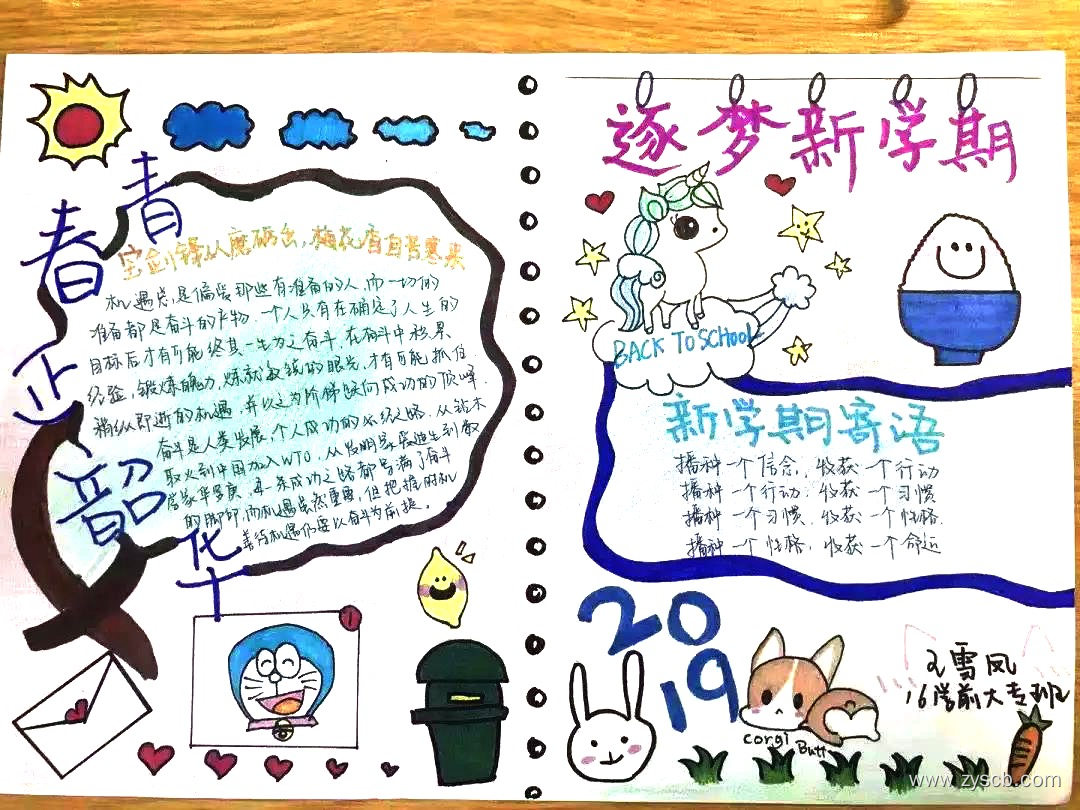 青春正韶华
宝剑锋从磨砺出，梅花香自苦寒来
机遇总是偏爱那些有准备的人，而一切的
准备都是奋斗的产物。一个人只有在确定了人生的
目标后才有可能终其一生为之奋斗，在奋斗中积累
经验，锻炼能力，炼就敏锐的眼光，才有可能抓住
稍纵即逝的机遇，并以之为阶梯跃向成功的顶峰。
奋斗是人类发展，个人成功的必经之路，从钻木
取火到中国加入WTO，从发明家爱迪生到数
学家华罗庚，每一条成功之路都写满了奋斗
的脚印，而机遇虽然重要，但把握时机
善待机遇仍要以奋斗为前提。
逐梦新学期
BACK TO SCHOOL
新学期寄语
播种一个信念，收获一个行动
播种一个行动，收获一个习惯
播种一个习惯，收获一个性格
播种一个性格，收获一个命运
2019
王雪凤
16学前大专班
corgi Butt
1
www.zyscb.com